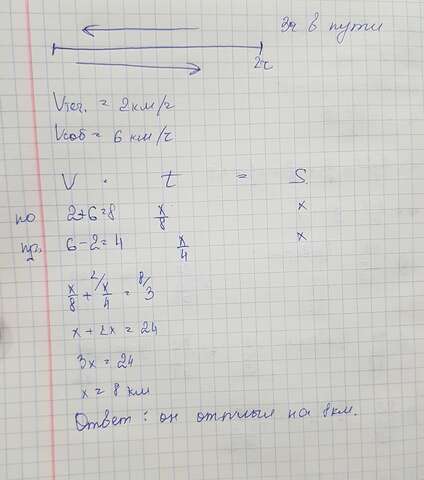 3ч в пути
2ч
Vтеч. = 2 км/ч
Vсоб = 6 км/ч
V · t = S
по 2+6=8 x/8 x
пр. 6-2=4 x/4 x
x/8 + 2/ x/4 = 8/ 3
x + 2x = 24
3x = 24
x = 8 км
Ответ: он отплыл на 8км.